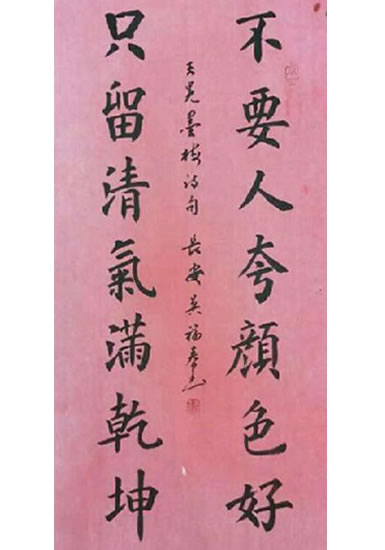 不要人夸顔色好
只留清氣滿乾坤
王冕墨梅诗句 長安吴福春书